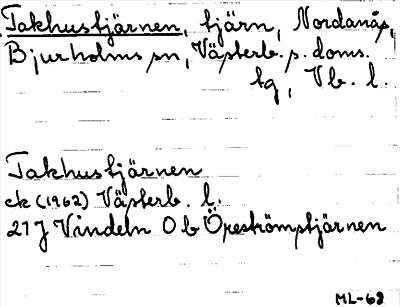 Takhustjärnen, tjärn, Nordanås,
Bjurholms sn, Västerb. s. doms.
tg, Vb. l.
Takhustjärnen
ek (1962) Västerb. l.
21J Vindeln 0b Öreströmstjärnen
ML-68